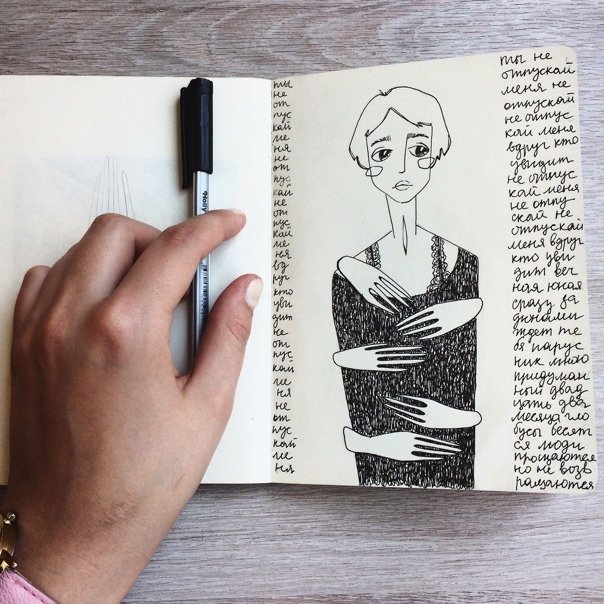 ты
не
от
пус
кай
ме
ня
не
от
пус
кай
не
от
пус
кай
ме
ня
вд
руг
кто
уви
дит
не
от
пус
кай
ме
ня
не
от
пус
кай
ме
ня
ты не
отпускай
меня не
отпускай
не отпус
кай меня
вдруг кто
увидит
не отпус
кай меня
не отпу
скай не
отпускай
меня вдруг
кто уви
дит веч
ная юная
сразу за
дюнами
ждет те
бя парус
ник мною
придуман
ный двад
цать два
месяца гло
бусы бесят
ся люди
прощаются
но не возв
ращаются